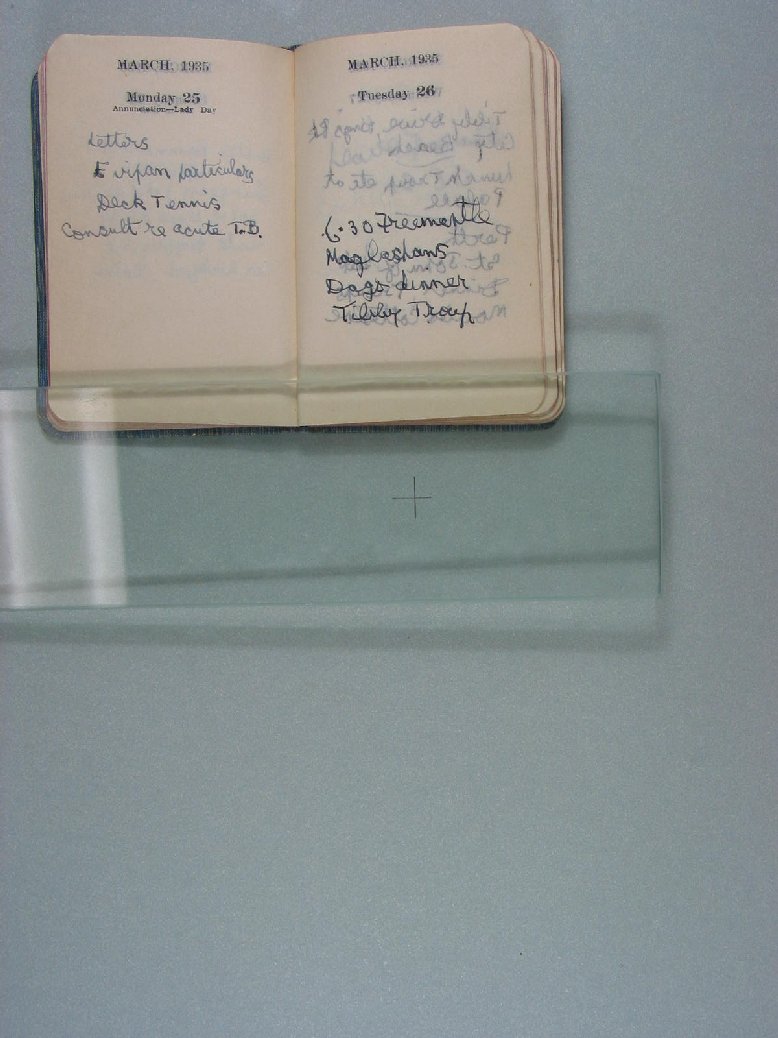 MARCH, 1935
Monday 25
Annunciation—Lady Day
Letters
Evipan particulars
Deck Tennis
Consult re acute T.B.
MARCH, 1935
Tuesday 26
6.30 Freemantle
Maglashans
Dags dinner
Tilsley Troup